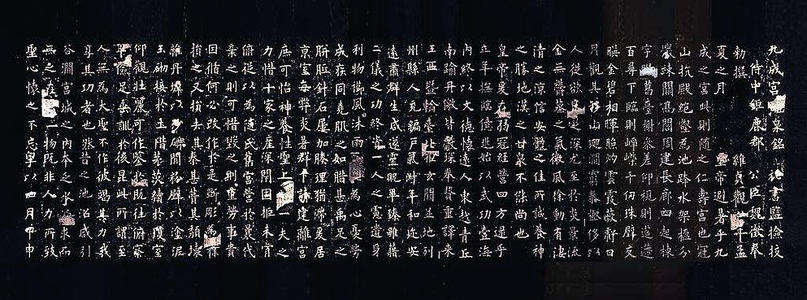 九成宮 泉銘 秘書監檢校
侍中鉅鹿郡公臣魏徵奉
勅撰 維貞觀 年孟
夏之月 帝避暑乎九
成之宮此則隨之仁壽宮也冠
山抗殿絕壑為池跨水架楹分
巖竦闕高閣周建長廊四起棟
宇 葛臺榭參差仰視則迢遰
百尋下臨則崢嶸千仞珠璧交
暎金碧相暉照灼雲霞蔽虧日
月觀其移山迴澗窮泰極侈以
人從欲良足深尤至於炎景流
金無鬱蒸之氣微風徐動有淒
清之涼信安體之佳所誠養神
之勝地漢之甘泉不能尚也
皇帝爰在弱冠經營四方逮乎
立年撫臨億兆始以武功壹海
內終以文德懷遠人東越青丘
南踰丹徼皆獻琛奉贄重譯來
王西暨輪臺北拒玄闕並地列
州縣人充編戶氣淑年和邇安
遠肅群生咸遂靈貺畢臻雖藉
二儀之功終資一人之慮遺身
利物櫛風沐雨百姓為心憂勞
成疾同堯肌之如腊甚禹足之
胼胝針石屢加腠理猶滯爰居
京室每弊炎暑群下請建離宮
庶可怡神養性聖上 一夫之
力惜十家之產深閉固拒未肯
俯從以為隨氏舊宮營於曩代
棄之則可惜毀之則重勞事貴
因循何必改作於是斲彫為樸
損之又損去其泰甚葺其頹壞
雜丹墀以沙礫間粉壁以塗泥
玉砌接於土階茅茨續於瓊室
仰觀壯麗可作鑒於既往俯察
卑儉足垂訓於後昆此所謂至
人無為大聖不作彼竭其力我
享其功者也然昔之池沼咸引
谷澗宮城之內本乏水 求而
無之在 一物既非人力所致
聖心懷之不忘粵以四月甲申